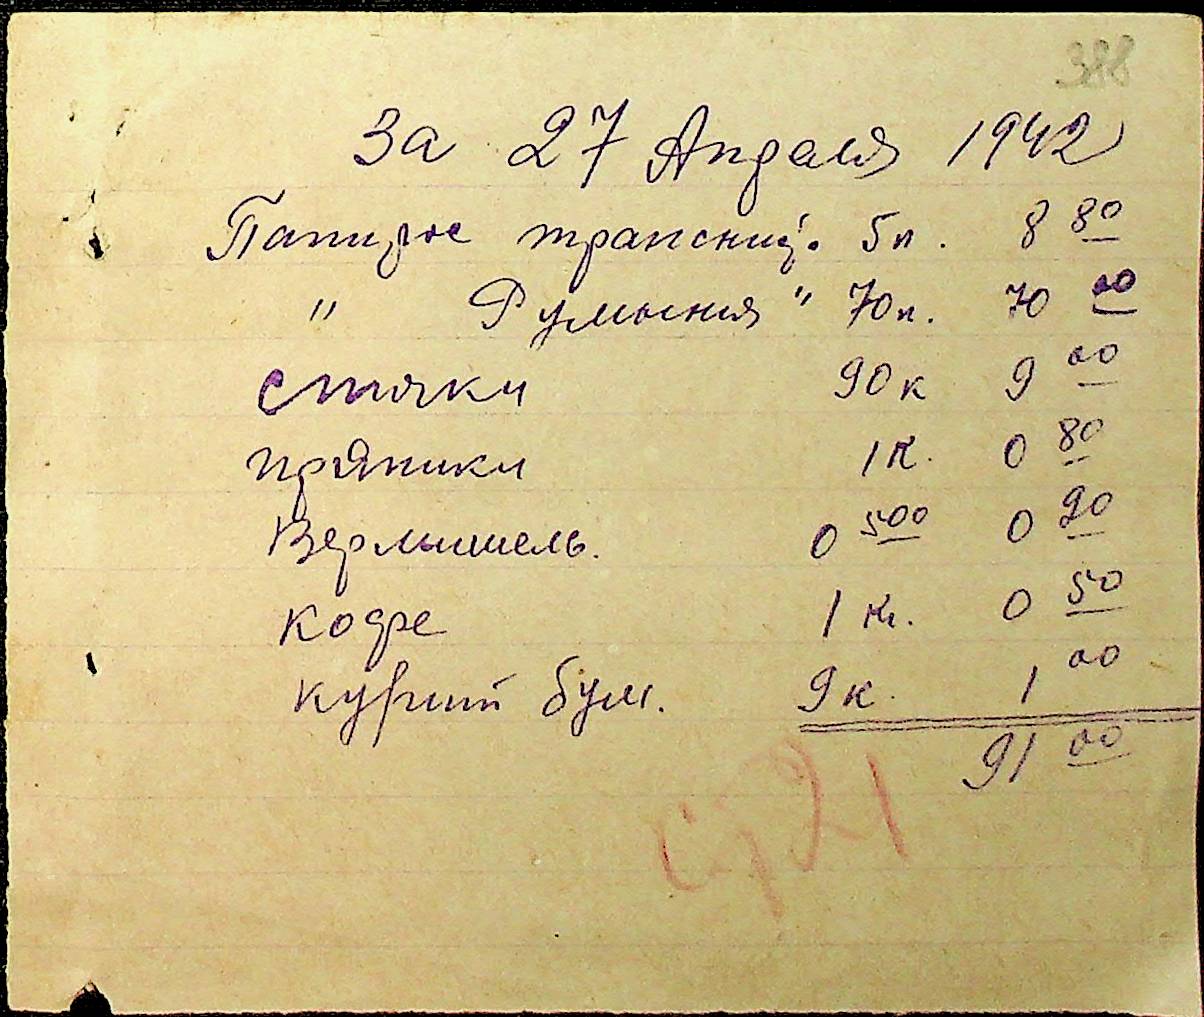 388
За 27 Апраля 1942
Папирос транснис. 5п. 8 80
" Румыния " 70п. 70 00
спички 90к 9 00
пряники 1к. 0 80
Вермышель. 0 500 0 90
кофе 1 к. 0 50
курит бум. 9к. 1 00
91 00